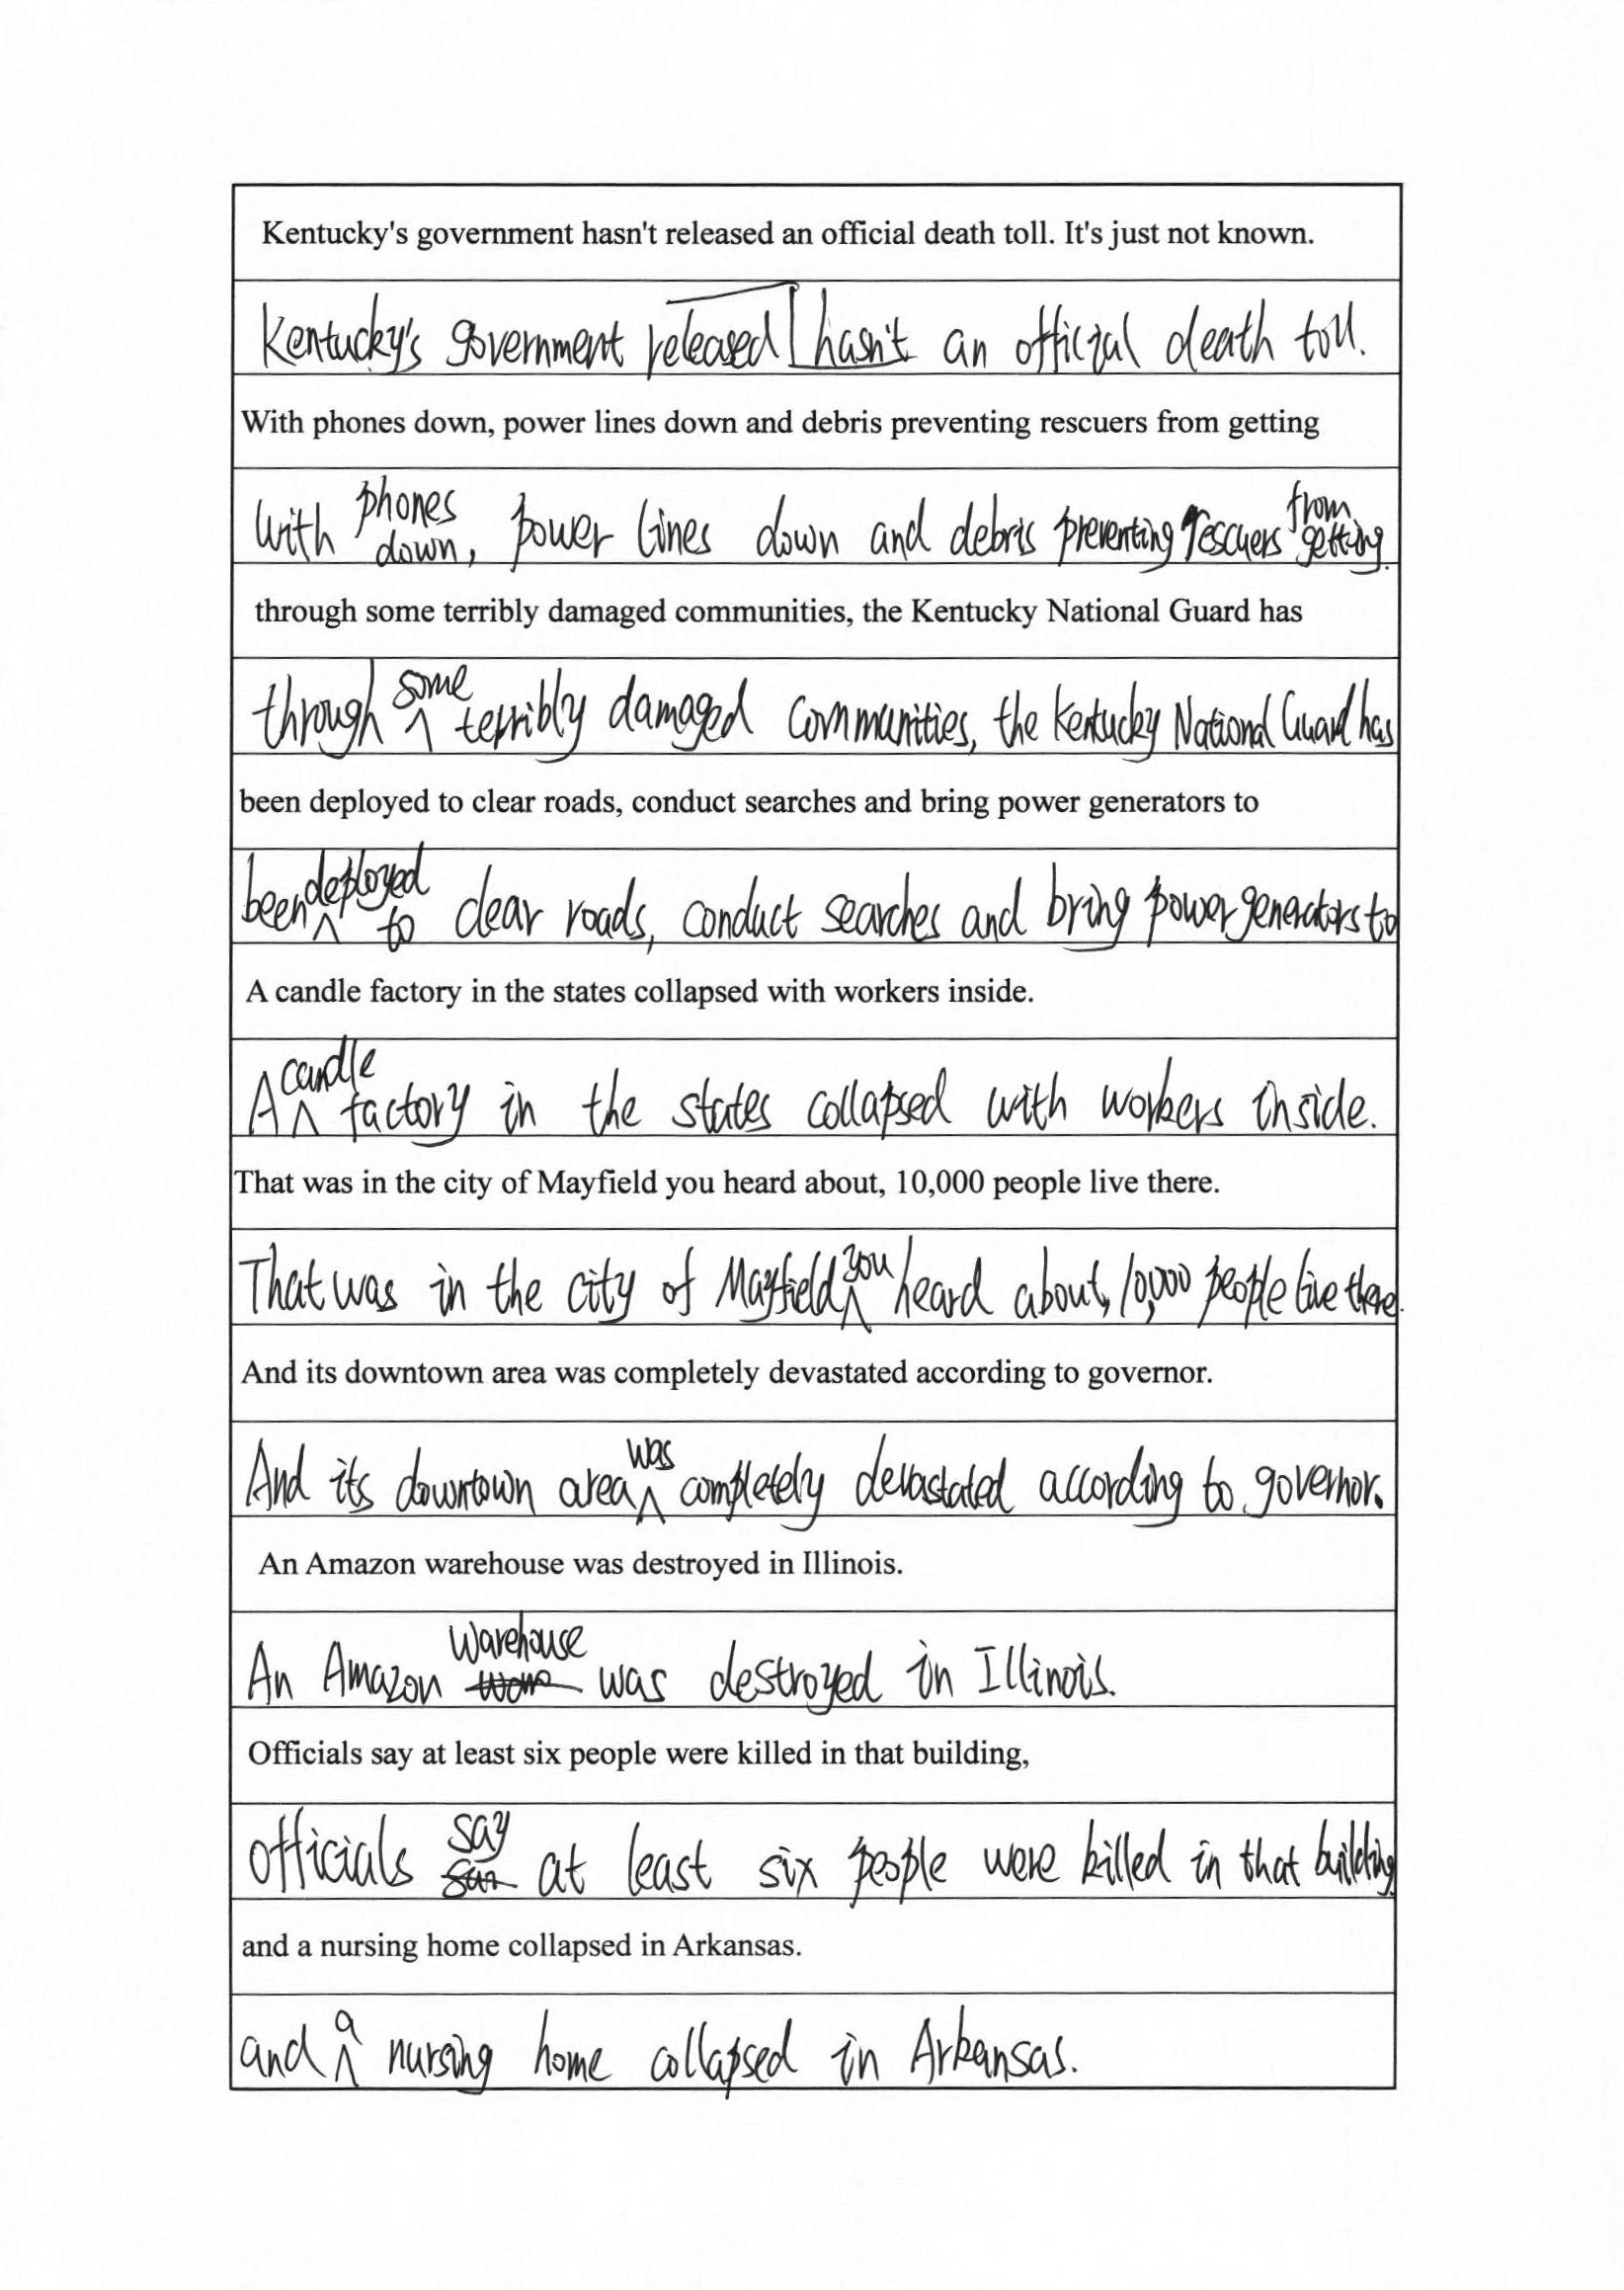 Kentucky's government hasn't released an official death toll. It's just not known.
Kentucky's government released hasn't an official death toll.
With phones down, power lines down and debris preventing rescuers from getting
with phones down, power lines down and debris preventing rescuers from getting
through some terribly damaged communities, the Kentucky National Guard has
through some terribly damaged communities, the Kentucky National Guard has
been deployed to clear roads, conduct searches and bring power generators to
been deployed to clear roads, conduct searches and bring power generators to
A candle factory in the states collapsed with workers inside.
A candle factory in the states collapsed with workers inside.
That was in the city of Mayfield you heard about, 10,000 people live there.
That was in the city of Mayfield you heard about, 10,000 people live there.
And its downtown area was completely devastated according to governor.
And its downtown area was completely devastated according to governor.
An Amazon warehouse was destroyed in Illinois.
An Amazon Warehouse was destroyed in Illinois.
Officials say at least six people were killed in that building,
officials say at least six people were killed in that building,
and a nursing home collapsed in Arkansas.
and a nursing home collapsed in Arkansas.